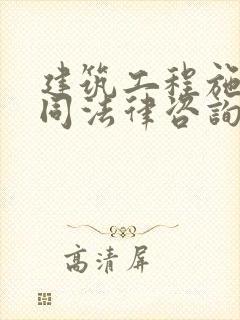 建筑工程施
同法律咨询
高清屏